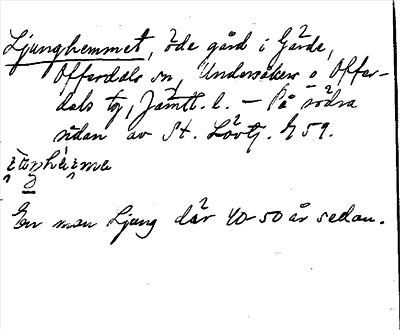 Ljunghemmet, öde gård i Gärde,
Offerdals sn, Undersåkers o Offer-
dals tg, Jämtl. l. — På södra
sidan av St. Lövtj. G 59.
En man Ljung där 40-50 år sedan.